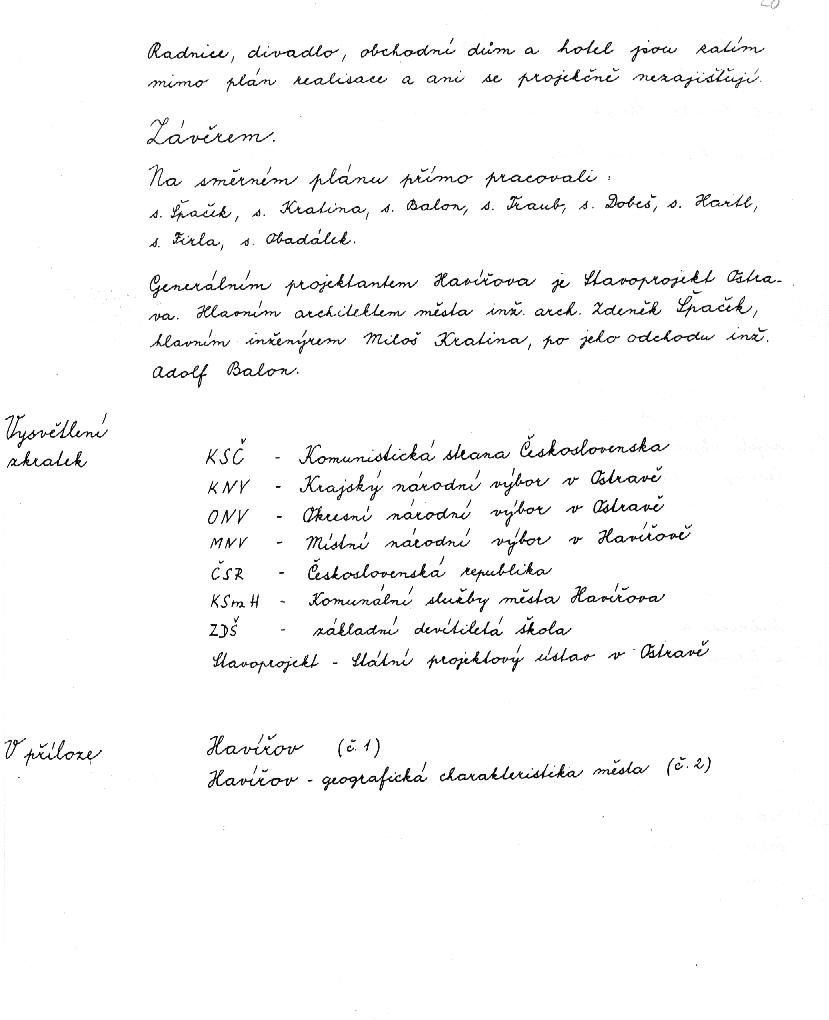 20
Radnice, divadlo, obchodní dům a hotel jsou zatím
mimo plán realisace a ani se projekčně nezajišťují.
Závěrem.
Na směrném plánu přímo pracovali :
s. Špaček, s. Kratina, s. Balon, s. Traub, s. Dobeš, s. Hartl,
s. Firla, s. Obadálek.
Generálním projektantem Havířova je Stavoprojekt Ostra-
va. Hlavním architektem města inž. arch. Zdeněk Špaček,
hlavním inženýrem Miloš Kratina, po jeho odchodu inž.
Adolf Balon.
Vysvětlení
zkratek
KSČ - Komunistická strana Československa
KNV - Krajský národní výbor v Ostravě
ONV - Okresní národní výbor v Ostravě
MNV - Místní národní výbor v Havířově
ČSR - Československá republika
KSmH - Komunální služby města Havířova
ZDŠ - základní devítiletá škola
Stavoprojekt - Státní projektový ústav v Ostravě
V příloze
Havířov (č. 1)
Havířov - geografická charakteristika města (č. 2)